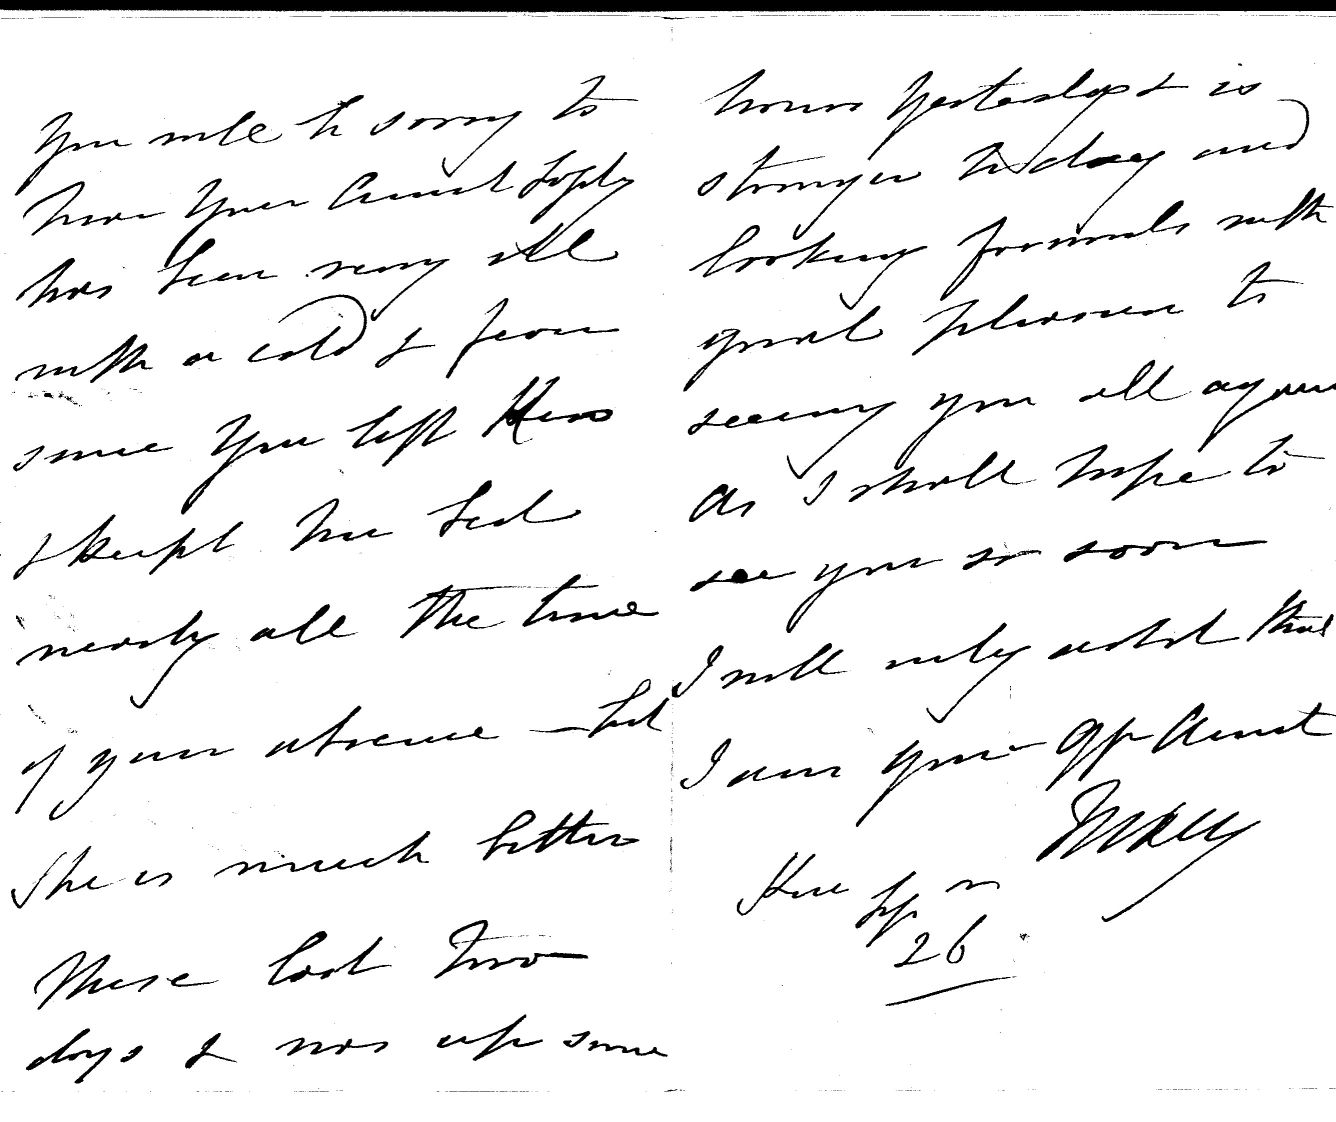 You will be sorry to
hear your Aunt Sophy
has been very ill
with a cold & fever
since you left Kew
& kept her bed
nearly all the time
of your absence — but
She is much better
these last two
days & was up some
hours yesterday & is
stronger to day and
looking forwards with
great pleasure to
seeing you all again
As I shall hope to
see you so soon
I will only add that
I am your Aff Aunt
Mary
Kew Sep
26